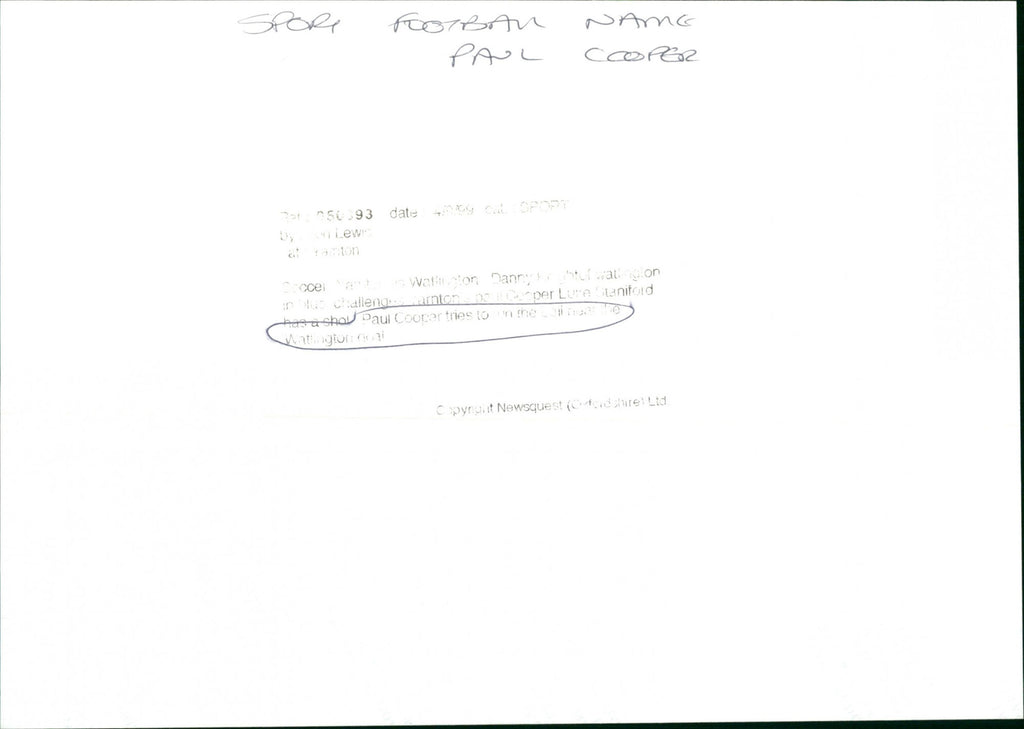 SPORT FOOTBALL NAME
PAUL COOPER
93 date 4/9/99 cat. SPORT
by Lewis
at
Soccer Watlington Danny watlington
in blue challenges Cooper Luke Staniford
has a shot Paul Cooper tries to the near the
Watlington goal
Copyright Newsquest (Oxfordshire) Ltd